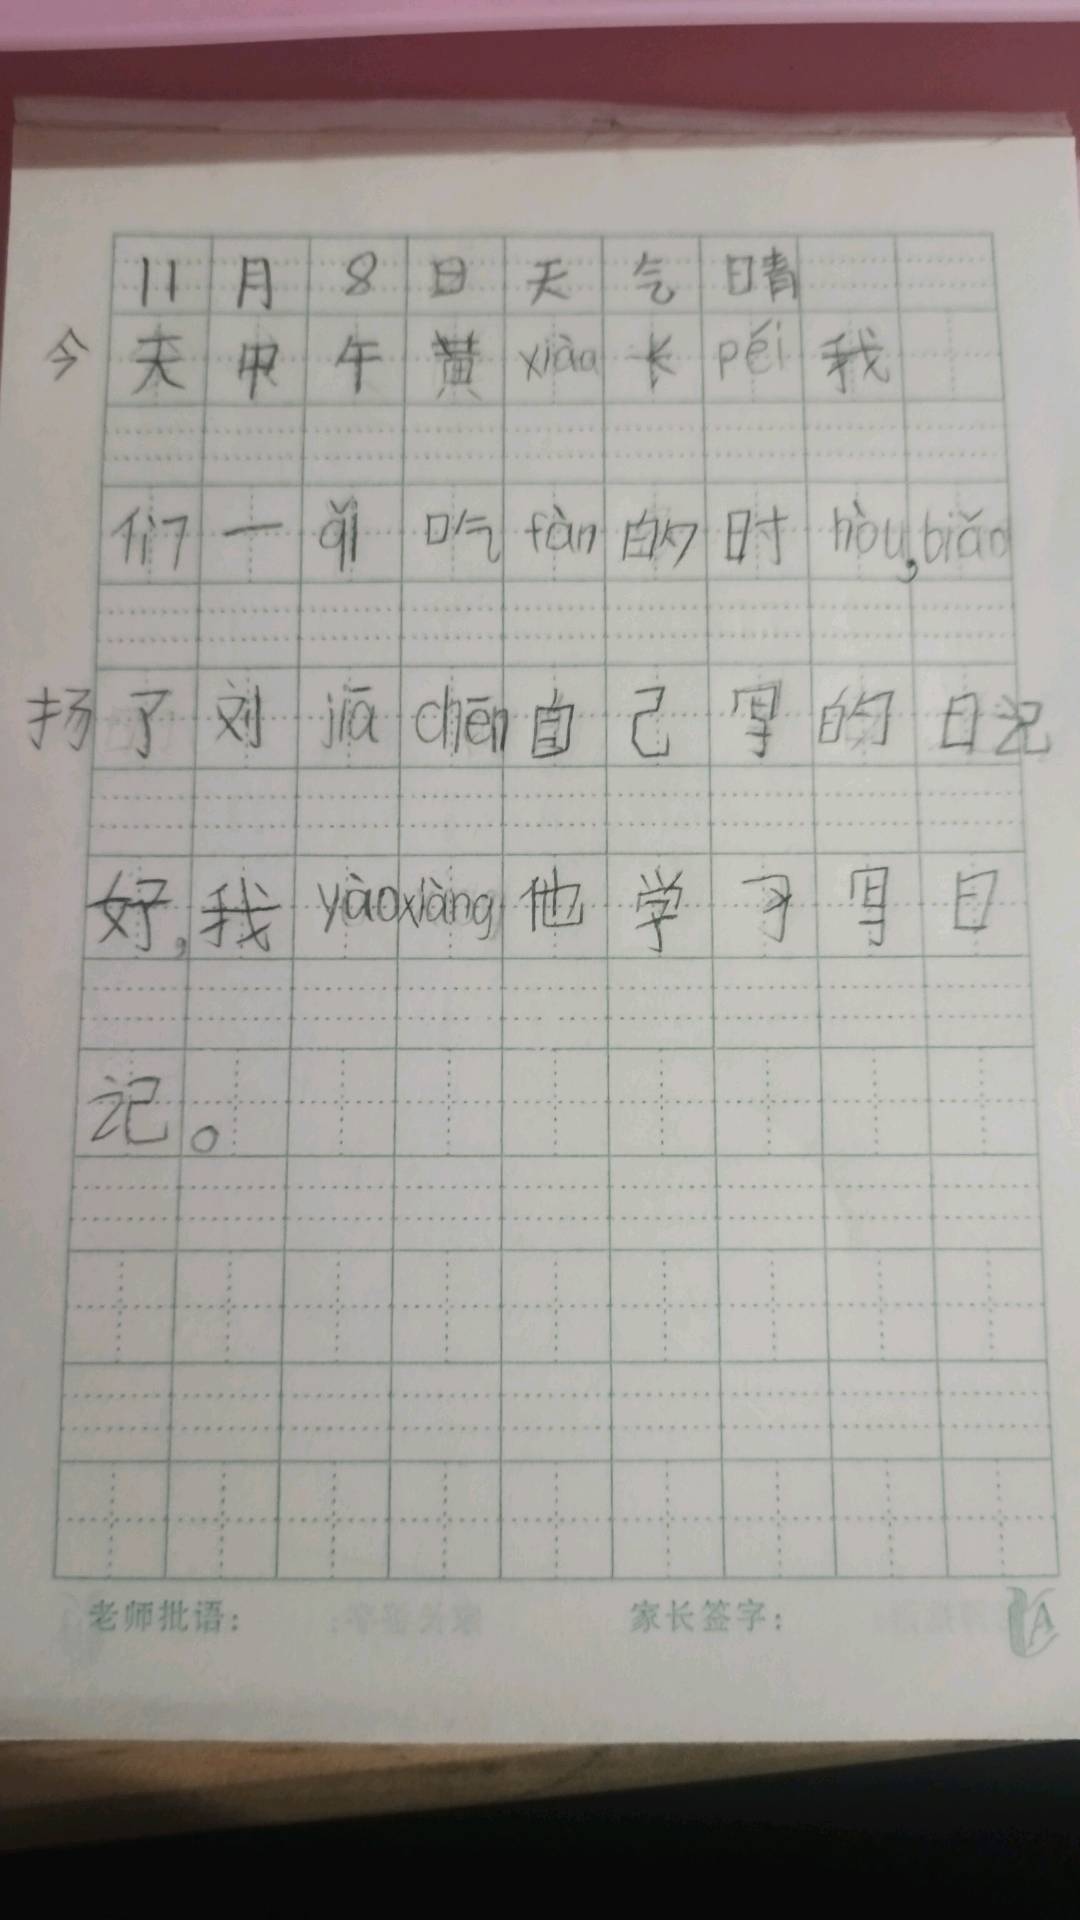 11月8日天气晴
今天中午黄xiào长péi我
们一qǐ吃fàn的时hòu,biǎo
扬了刘jiāchēn自己写的日记
好,我yàoxiàng他学习写日
记。
老师批语: 家长签字: